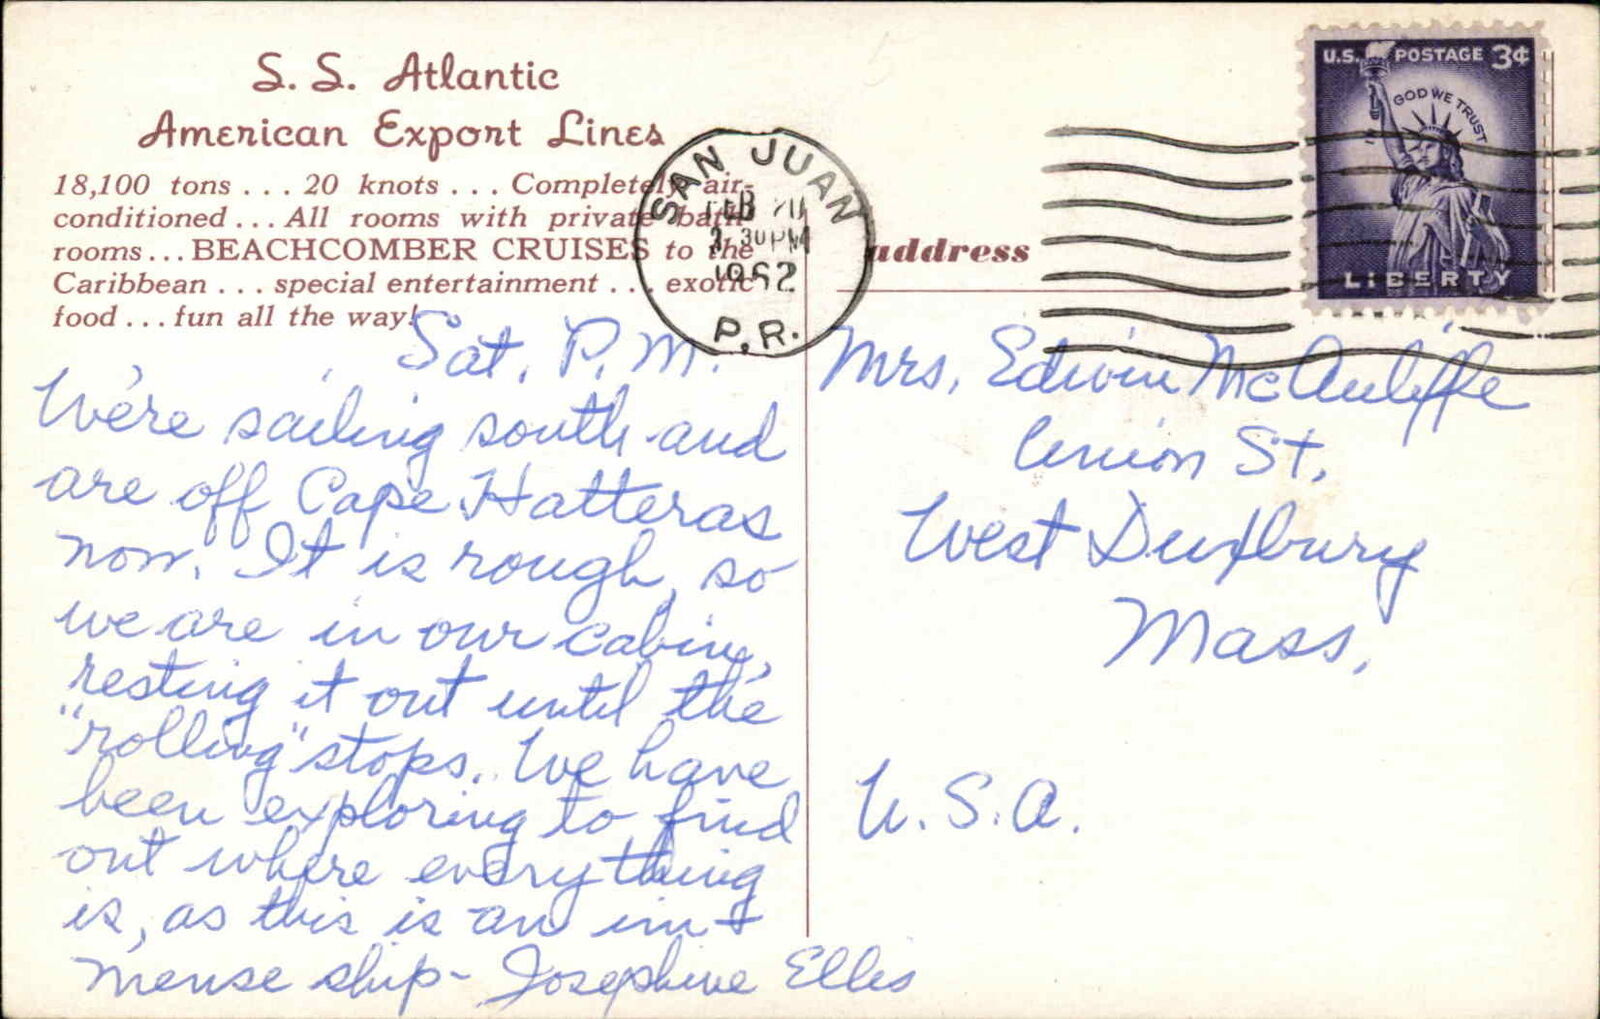 S. S. Atlantic
American Export Lines
18,100 tons . . . 20 knots . . . Completely air-
conditioned . . . All rooms with private bath
rooms . . . BEACHCOMBER CRUISES to the
Caribbean . . . special entertainment . . . exotic
food . . . fun all the way!
SAN JUAN
FEB
30 PM
1962
P.R.
U.S. POSTAGE 3¢
GOD WE TRUST
LIBERTY
address
Sat. P.M.
We're sailing south and
are off Cape Hatteras
now. It is rough, so
we are in our cabin,
resting it out until the
"rolling" stops. We have
been exploring to find
out where everything
is, as this is an im-
mense ship - Josephine Ellis
Mrs. Edwin McAuliffe
Union St.
West Duxbury
Mass.
U.S.A.